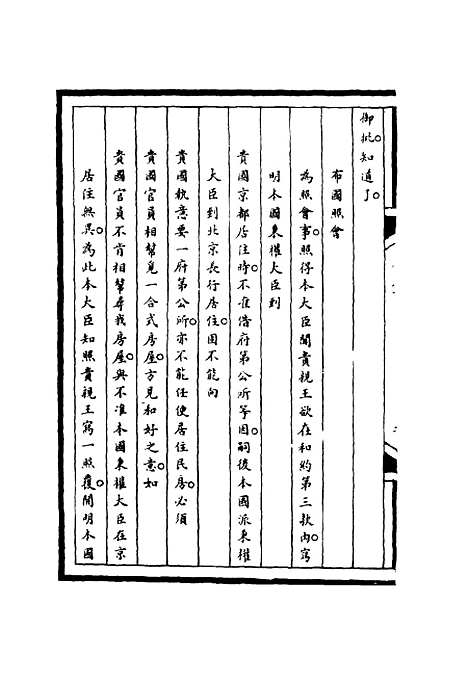 御批知道了
布國照會
為照會事照得本大臣聞貴親王欲在和約第三款內寫
明本國秉權大臣到
貴國京都居住時不准借府第公所等因嗣後本國派秉權
大臣到北京長行居住因不能向
貴國執意要一府第公所亦不能任使居住民房必須
貴國官員相幫覓一合式房屋方見和好之意如
貴國官員不肯相幫尋找房屋與不准本國秉權大臣在京
居住無異為此本大臣知照貴親王寫一照覆開明本國